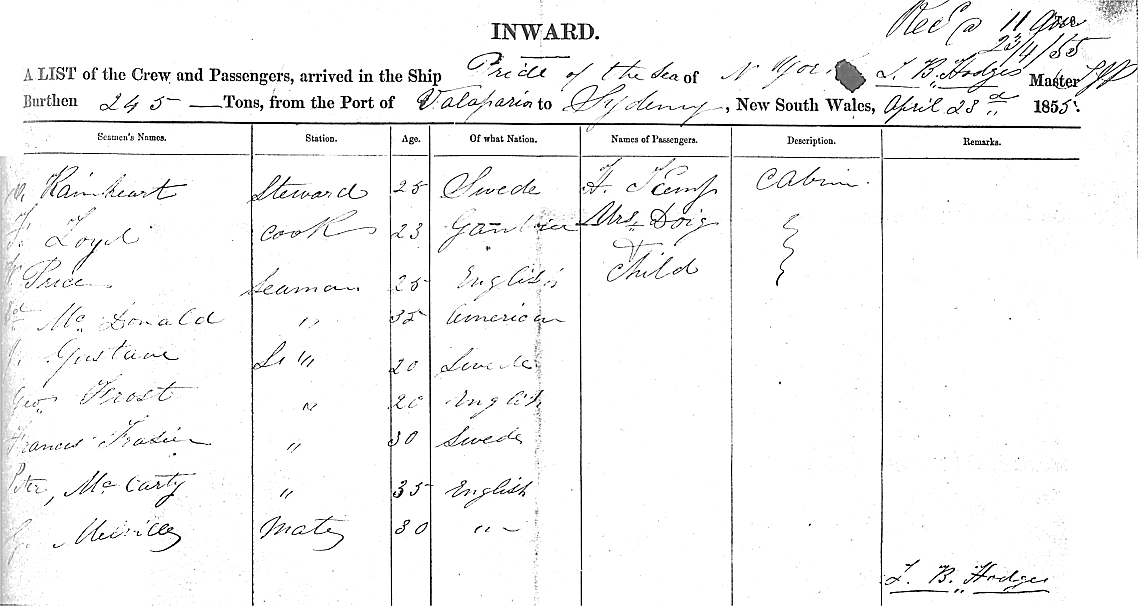 INWARD.
Rec'd 11
23/4/55
A LIST of the Crew and Passengers, arrived in the Ship Pride of the Sea of N Yor L. B. Hodges Master
Burthen 245 Tons, from the Port of Valaparia to Sydeny, New South Wales, April 23d 1855.
Seamen's Names. Station. Age. Of what Nation. Names of Passengers. Description. Remarks.
Rainheart Steward 25 Swede H. Kemp Cabin.
Loyd Cook 23 Mrs. Doig
Price Seaman 25 English Child
Mc Donald " 35 American
Gustave " 20 Swede
Geo. Frost " 20 English
Francis Frasier " 30 Swede
Peter, Mc Carty " 35 English
Melville Mate 30 "
L. B. Hodges